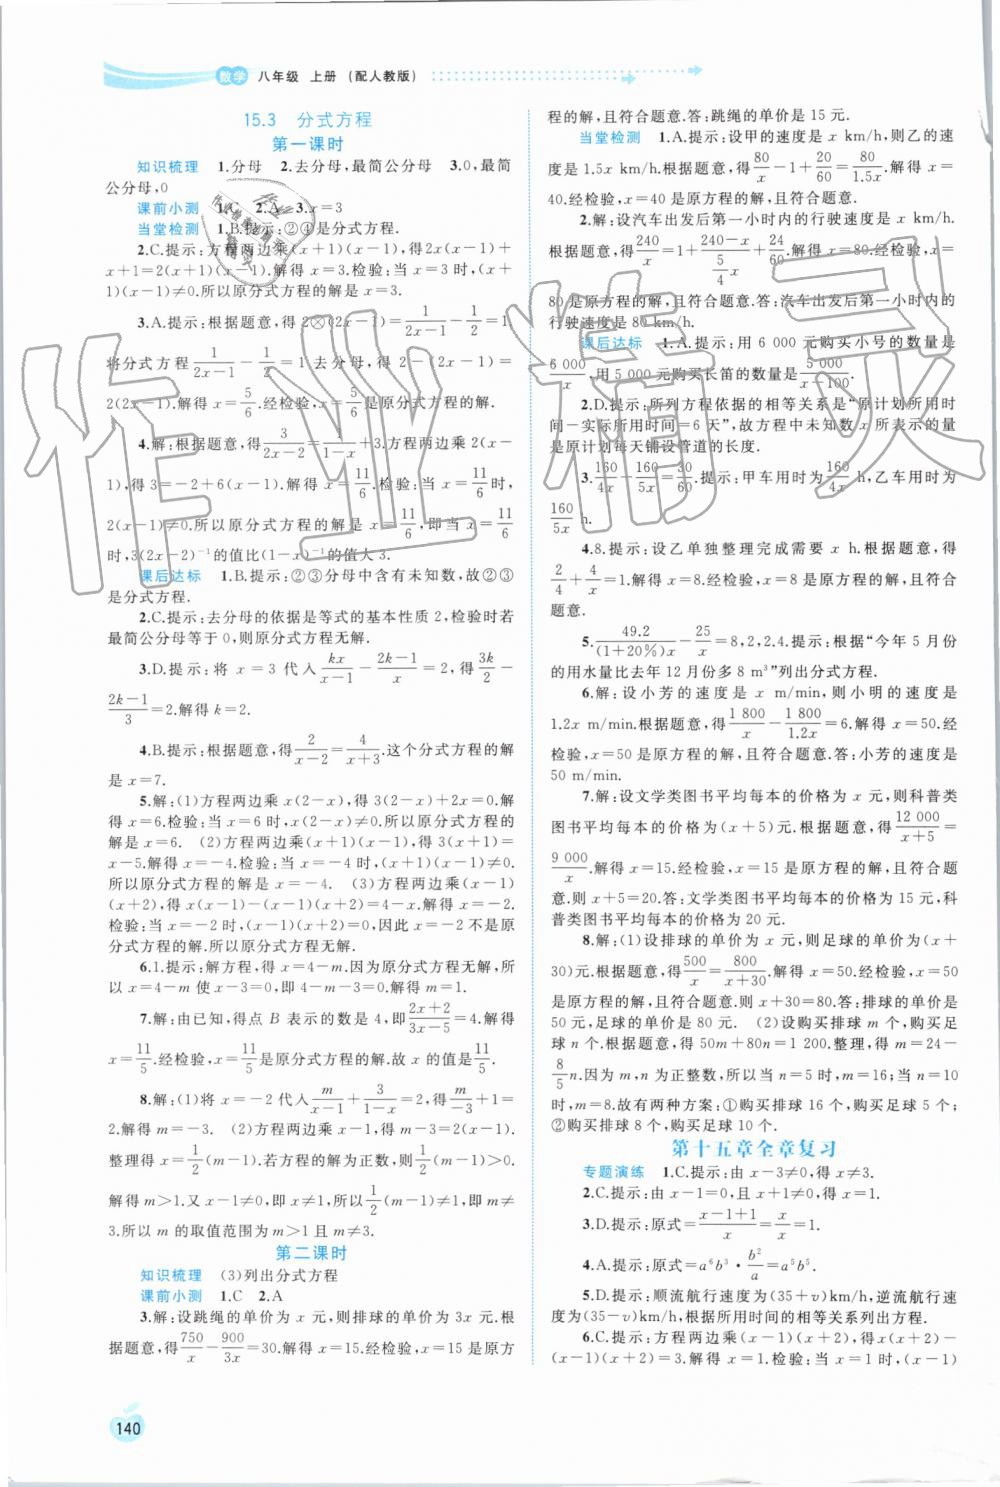 数学 八年级 上册 (配人教版)
15.3 分式方程
第一课时
知识梳理 1.分母 2.去分母,最简公分母 3.0,最简
公分母,0
课前小测 1.C 2.A 3.x=3
当堂检测 1.B.提示:②④是分式方程.
2.C.提示:方程两边乘(x+1)(x-1),得2x(x-1)+
x+1=2(x+1)(x-1).解得 x=3.检验:当 x=3时,(x+
1)(x-1)≠0.所以原分式方程的解是 x=3.
3.A.提示:根据题意,得 2⊗(2x-1)=1/(2x-1)-1/2=1,
将分式方程 1/(2x-1)-1/2=1 去分母,得 2-(2x-1)=
2(2x-1).解得 x=5/6.经检验,x=5/6是原分式方程的解.
4.解:根据题意,得3/(2x-2)=1/(1-x)+3.方程两边乘 2(x-
1),得3=-2+6(x-1).解得 x=11/6.检验:当 x=11/6时,
2(x-1)≠0.所以原分式方程的解是 x=11/6,即当 x=11/6
时,3(2x-2)⁻¹的值比(1-x)⁻¹的值大 3.
课后达标 1.B.提示:②③分母中含有未知数,故②③
是分式方程.
2.C.提示:去分母的依据是等式的基本性质 2,检验时若
最简公分母等于 0,则原分式方程无解.
3.D.提示:将 x=3 代入 kx/(x-1)-(2k-1)/x=2,得3k/2-
(2k-1)/3=2.解得 k=2.
4.B.提示:根据题意,得2/(x-2)=4/(x+3).这个分式方程的解
是 x=7.
5.解:(1)方程两边乘 x(2-x),得 3(2-x)+2x=0.解
得 x=6.检验:当 x=6 时,x(2-x)≠0.所以原分式方程的
解是 x=6. (2)方程两边乘(x+1)(x-1),得 3(x+1)=
x-5.解得 x=-4.检验:当 x=-4 时,(x+1)(x-1)≠0.
所以原分式方程的解是 x=-4. (3)方程两边乘(x-1)
(x+2),得 x(x-1)-(x-1)(x+2)=4-x.解得 x=-2.
检验:当 x=-2 时,(x-1)(x+2)=0,因此 x=-2 不是原
分式方程的解.所以原分式方程无解.
6.1.提示:解方程,得 x=4-m.因为原分式方程无解,所
以 x=4-m 使 x-3=0,即 4-m-3=0.解得 m=1.
7.解:由已知,得点 B 表示的数是 4,即(2x+2)/(3x-5)=4.解得
x=11/5.经检验,x=11/5是原分式方程的解.故 x 的值是11/5.
8.解:(1)将 x=-2 代入m/(x-1)+3/(1-x)=2,得m/(-3)+1=
2.解得 m=-3. (2)方程两边乘 x-1,得 m-3=2(x-1).
整理得 x=1/2(m-1).若方程的解为正数,则1/2(m-1)>0.
解得 m>1.又 x-1≠0,即 x≠1,所以1/2(m-1)≠1,即 m≠
3.所以 m 的取值范围为 m>1 且 m≠3.
第二课时
知识梳理 (3)列出分式方程
课前小测 1.C 2.A
3.解:设跳绳的单价为 x 元,则排球的单价为 3x 元.根
据题意,得750/x-900/3x=30.解得 x=15.经检验,x=15 是原方
程的解,且符合题意.答:跳绳的单价是 15 元.
当堂检测 1.A.提示:设甲的速度是 x km/h,则乙的速
度是 1.5x km/h.根据题意,得80/x-1+20/60=80/1.5x.解得 x=
40.经检验,x=40 是原方程的解,且符合题意.
2.解:设汽车出发后第一小时内的行驶速度是 x km/h.
根据题意,得240/x=1+(240-x)/(5/4 x)+24/60.解得 x=80.经检验,x=
80是原方程的解,且符合题意.答:汽车出发后第一小时内的
行驶速度是 80 km/h.
课后达标 1.A.提示:用 6 000 元购买小号的数量是
6 000/x,用 5 000 元购买长笛的数量是5 000/(x-100).
2.D.提示:所列方程依据的相等关系是“原计划所用时
间-实际所用时间=6 天”,故方程中未知数 x 所表示的量
是原计划每天铺设管道的长度.
3.160/4x-160/5x=30/60.提示:甲车用时为160/4x h,乙车用时为
160/5x h.
4.8.提示:设乙单独整理完成需要 x h.根据题意,得
2/4+4/x=1.解得 x=8.经检验,x=8 是原方程的解,且符合
题意.
5.49.2/((1+20%)x)-25/x=8,2,2.4.提示:根据“今年 5 月份
的用水量比去年 12 月份多 8 m³”列出分式方程.
6.解:设小芳的速度是 x m/min,则小明的速度是
1.2x m/min.根据题意,得1 800/x-1 800/1.2x=6.解得 x=50.经
检验,x=50 是原方程的解,且符合题意.答:小芳的速度是
50 m/min.
7.解:设文学类图书平均每本的价格为 x 元,则科普类
图书平均每本的价格为(x+5)元.根据题意,得12 000/(x+5)=
9 000/x.解得 x=15.经检验,x=15 是原方程的解,且符合题
意.则 x+5=20.答:文学类图书平均每本的价格为 15 元,科
普类图书平均每本的价格为 20 元.
8.解:(1)设排球的单价为 x 元,则足球的单价为(x+
30)元.根据题意,得500/x=800/(x+30).解得 x=50.经检验,x=50
是原方程的解,且符合题意.则 x+30=80.答:排球的单价是
50 元,足球的单价是 80 元. (2)设购买排球 m 个,购买足
球 n 个.根据题意,得 50m+80n=1 200.整理,得 m=24-
8/5n.因为 m,n 为正整数,所以当 n=5 时,m=16;当 n=10时,
m=8.故有两种方案:①购买排球 16 个,购买足球 5 个;
②购买排球 8 个,购买足球 10 个.
第十五章全章复习
专题演练 1.C.提示:由 x-3≠0,得 x≠3.
2.C.提示:由 x-1=0,且 x+1≠0,得 x=1.
3.D.提示:原式=(x-1+1)/x=x/x=1.
4.A.提示:原式=a⁶b³·b²/a=a⁵b⁵.
5.D.提示:顺流航行速度为(35+v)km/h,逆流航行速
度为(35-v)km/h,根据所用时间的相等关系列出方程.
6.C.提示:方程两边乘(x-1)(x+2),得 x(x+2)-
(x-1)(x+2)=3.解得 x=1.检验:当 x=1时,(x-1)
140
作业精灵